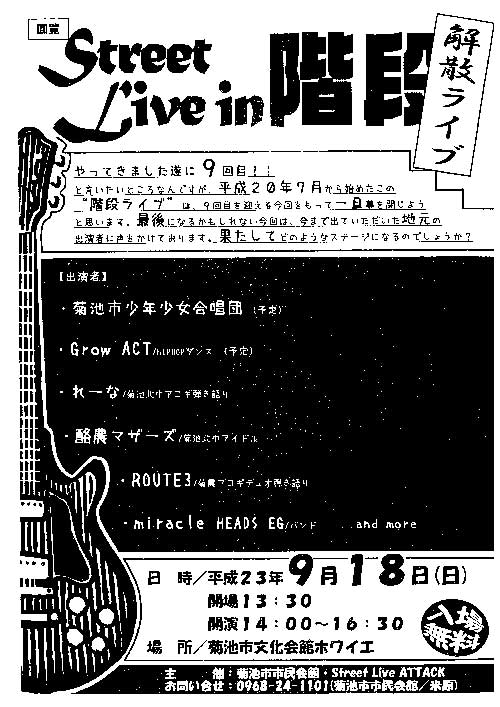 回覧
Street
Live in 階段
解散ライブ
やってきました遂に9回目!!
と言いたいところなんですが、平成20年7月から始めたこの
“階段ライブ”は、9回目を迎える今回をもって一旦幕を閉じよう
と思います。最後になるかもしれない今回は、今まで出ていただいた地元の
出演者に声をかけております。果たしてどのようなステージになるのでしょうか?
【出演者】
・菊池市少年少女合唱団(予定)
・Grow ACT/HIPHOPダンス (予定)
・れーな/菊池北中アコギ弾き語り
・酪農マザーズ/菊池北中アイドル
・ROUTE3/菊農アコギデュオ弾き語り
・miracle HEADS EG/バンド ...and more
日 時/平成23年9月18日(日)
開場13:30
開演14:00~16:30
場 所/菊池市文化会館ホワイエ
入場無料
主 催:菊池市市民会館・Street Live ATTACK
お問い合せ:0968-24-1101(菊池市市民会館/米原)